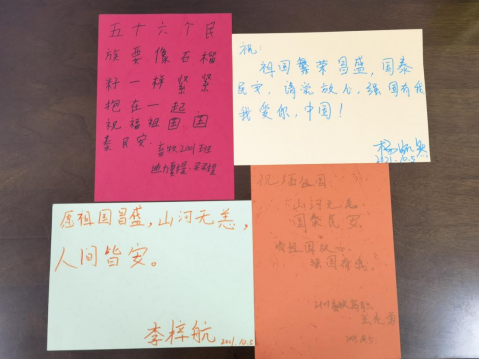 五十六个民
族要像石榴
籽一样紧紧
抱在一起
祝福祖国国
泰民安.
畜牧2001班
祝:
祖国繁荣昌盛,国泰
民安,请党放心,强国有我
我爱你,中国!
2021.10.5
愿祖国昌盛,山河无恙,
人间皆安。
李梓航
2021.10.5
祝福祖国:
山河无恙
国泰民安
请祖国放心
强国有我